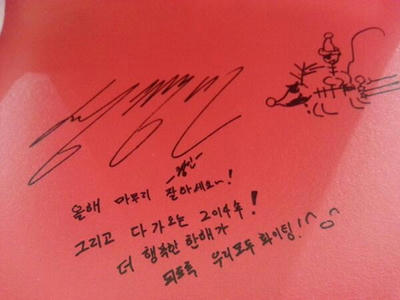 -경인-
올해 마무리 잘하세요~!
그리고 다가오는 2014年!
더 행복한 한해가
되도록 우리모두 화이팅!^o^